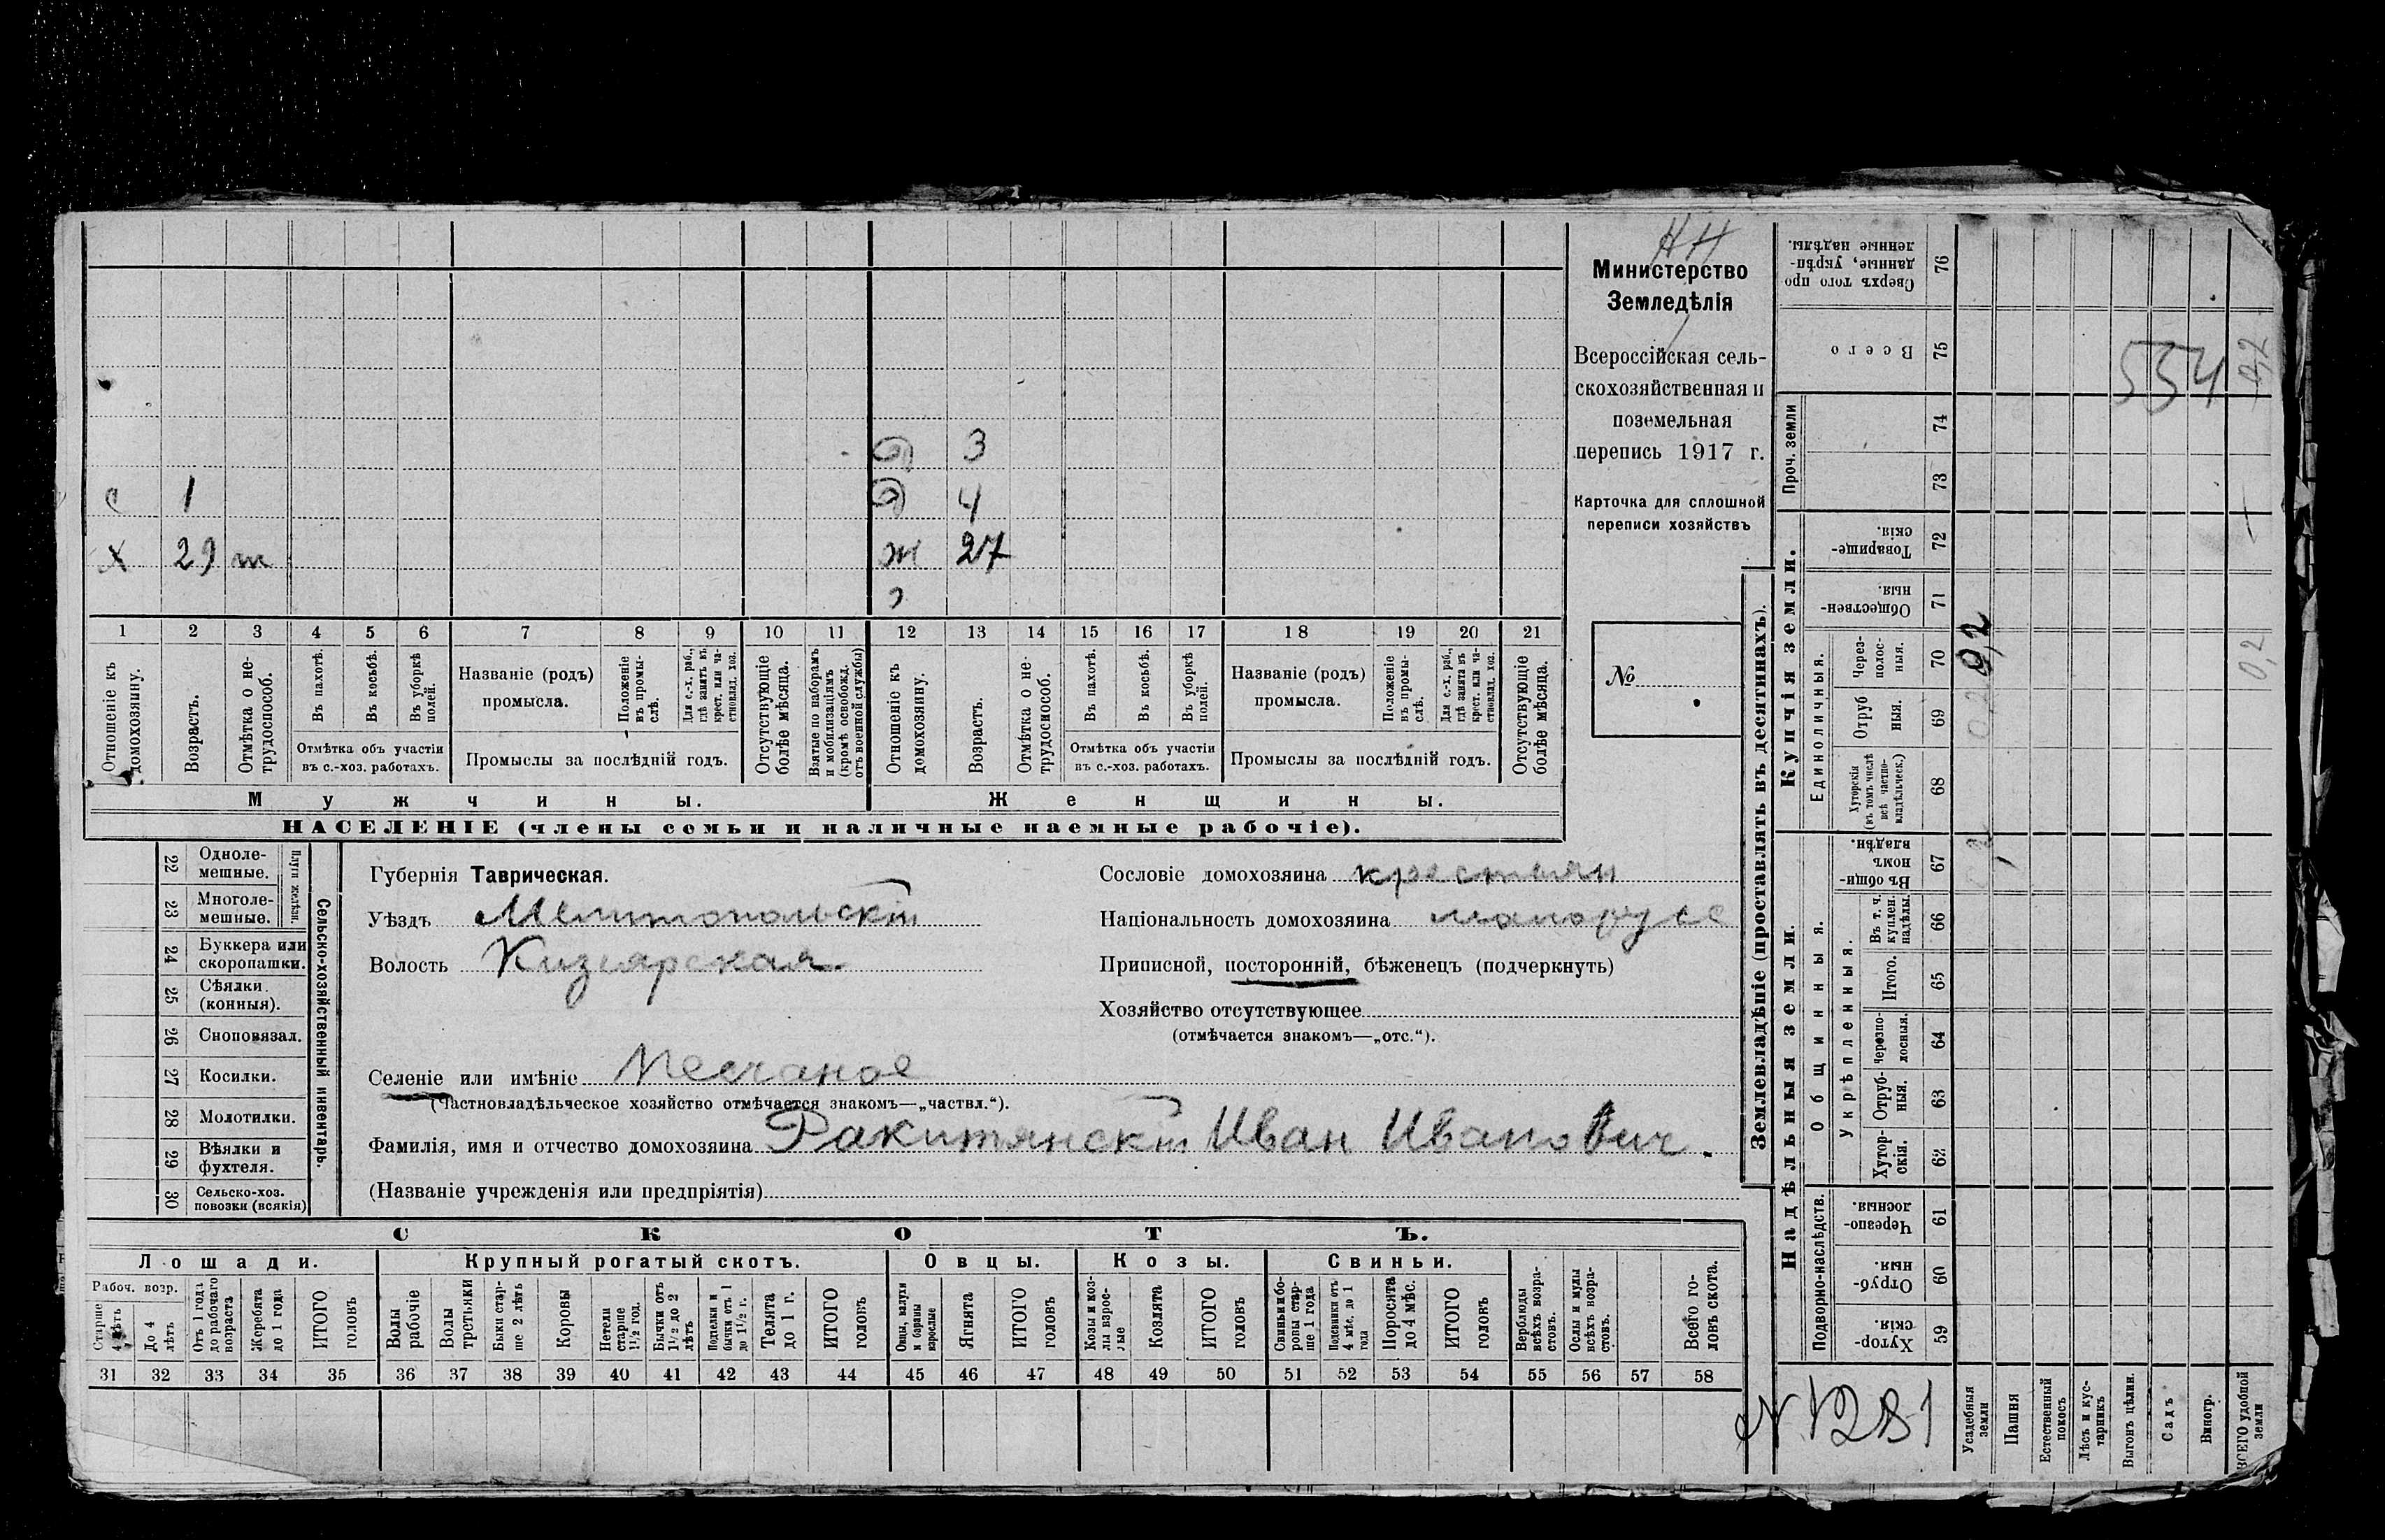 НН
Министерство
Земледѣлія
Всероссійская сель-
скохозяйственная и
поземельная
перепись 1917 г.
Карточка для сплошной
переписи хозяйствъ
№
д 3
с 1 д 4
х 29 т ж 27
1 2 3 4 5 6 7 8 9 10 11 12 13 14 15 16 17 18 19 20 21
Отношеніе къ домохозяину.
Возрастъ.
Отмѣтка о не-
трудоспособ.
Въ пахотѣ.
Въ косьбѣ.
Въ уборкѣ
полей.
Отмѣтка объ участіи
въ с.-хоз. работахъ.
Названіе (родъ)
промысла.
Положеніе
въ промы-
слѣ.
Для с.-х. раб.,
гдѣ занятъ въ
крест. или ча-
стновлад. хоз.
Промыслы за послѣдній годъ.
Отсутствующіе
болѣе мѣсяца.
Взятые по наборамъ
и мобилизаціямъ
(кромѣ освобожд.
отъ военной службы)
Отношеніе къ
домохозяину.
Возрастъ.
Отмѣтка о не-
трудоспособ.
Въ пахотѣ.
Въ косьбѣ.
Въ уборкѣ
полей.
Отмѣтка объ участіи
въ с.-хоз. работахъ.
Названіе (родъ)
промысла.
Положеніе
въ промы-
слѣ.
Для с.-х. раб.,
гдѣ занята въ
крест. или ча-
стновлад. хоз.
Промыслы за послѣдній годъ.
Отсутствующіе
болѣе мѣсяца.
Мужчины.
Женщины.
НАСЕЛЕНІЕ (члены семьи и наличные наемные рабочіе).
22 Одноле-
мешные.
23 Многоле-
мешные.
Плуги желѣзн.
24 Буккера или
скоропашки.
25 Сѣялки.
(конныя).
26 Сноповязал.
27 Косилки.
28 Молотилки.
29 Вѣялки и
фухтеля.
30 Сельско-хоз.
повозки (всякія)
Сельско-хозяйственный инвентарь.
Губернія Таврическая.
Уѣздъ Мелитопольскій
Волость Кизеярская
Сословіе домохозяина крестьян
Національность домохозяина малорусс
Приписной, посторонній, бѣженецъ (подчеркнуть)
Хозяйство отсутствующее
(отмѣчается знакомъ—„отс.“).
Селеніе или имѣніе Песчаное
(Частновладѣльческое хозяйство отмѣчается знакомъ—„частвл.“).
Фамилія, имя и отчество домохозяина Ракитянскій Иван Иванович.
(Названіе учрежденія или предпріятія)
СКОТЪ.
Лошади.
Крупный рогатый скотъ.
Овцы.
Козы.
Свиньи.
Рабоч. возр.
Старше
4 лѣтъ
До 4
лѣтъ
Отъ 1 года
до рабочаго
возраста
Жеребята
до 1 года
ИТОГО
головъ
Волы
рабочіе
Волы
третьяки
Быки стар-
ше 2 лѣтъ
Коровы
Нетели
старше
1½ год.
Бычки отъ
1½ до 2
лѣтъ
Подтелки и
бычки отъ 1
до 1½ г.
Телята
до 1 г.
ИТОГО
головъ
Овцы, валухи
и бараны
взрослые
Ягнята
ИТОГО
головъ
Козы и коз-
лы взрос-
лые
Козлята
ИТОГО
головъ
Свиньи и бо-
ровы стар-
ше 1 года
Подсвинки отъ
4 мѣс. до 1
года
Поросята
до 4 мѣс.
ИТОГО
головъ
Верблюды
всѣхъ возра-
стовъ.
Ослы и мулы
всѣхъ возра-
стовъ.
Всего го-
ловъ скота.
31 32 33 34 35 36 37 38 39 40 41 42 43 44 45 46 47 48 49 50 51 52 53 54 55 56 57 58
Землевладѣніе (проставлять въ десятинахъ).
Купчія земли.
Надѣльныя земли.
76 Сверхъ того про
данные, укрѣп-
ленные надѣлы.
75 Всего
Проч. земли
74
73
72 Товарище-
скія.
71 Обществен-
ныя.
Единоличныя.
70 Через-
полос-
ныя.
69 Отруб
ныя.
68 Хуторскія
(въ томъ числѣ
всѣ частно-
владѣльческ.)
Общинныя.
67 Въ общи-
номъ
владѣн.
Укрѣпленныя.
66 Въ т. ч.
куплен.
надѣлы.
65 Итого.
64 Черезпо-
лосныя.
63 Отруб-
ныя.
62 Хутор-
скія.
Подворно-наслѣдств.
61 Черезпо-
лосныя.
60 Отруб-
ныя.
59 Хутор-
скія.
Усадебныя
земли
Пашня
Естественный
покосъ
Лѣсъ и кус-
тарникъ
Выгонъ цѣлин.
Садъ
Виногр.
ВСЕГО удобной
земли
534
0,2
0,2